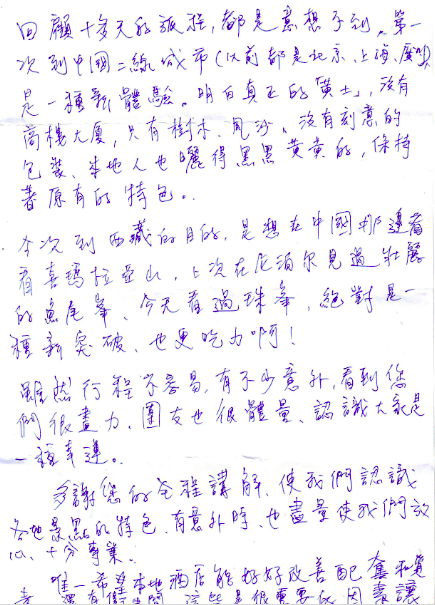 回顧十多天的旅程,都是意想不到。第一
次到中國二線城市(以前都是北京、上海、廣州)
是一種新體驗。明白真正的「黃土」,沒有
高樓大廈,只有樹木、風沙。沒有刻意的
包裝、本地人也曬得黑黑黃黃的,保持
著原有的特色。
本次到西藏的目的,是想在中國那邊看
看喜瑪拉亞山,上次在尼泊爾見過壯麗
的魚尾峯、今天看過珠峯,絕對是一
種新突破、也更吃力啊!
雖然行程不容易,有不少意外,看到您
們很盡力、團友也很體量、認識大家是
一種幸運。
多謝您的全程講解、使我們認識
各地景點的特色、有意外時、也盡量使我們放
心、十分專業。
唯一希望本地酒店能好好改善配套和質
還有衛生間、這些是很重要的因素讓